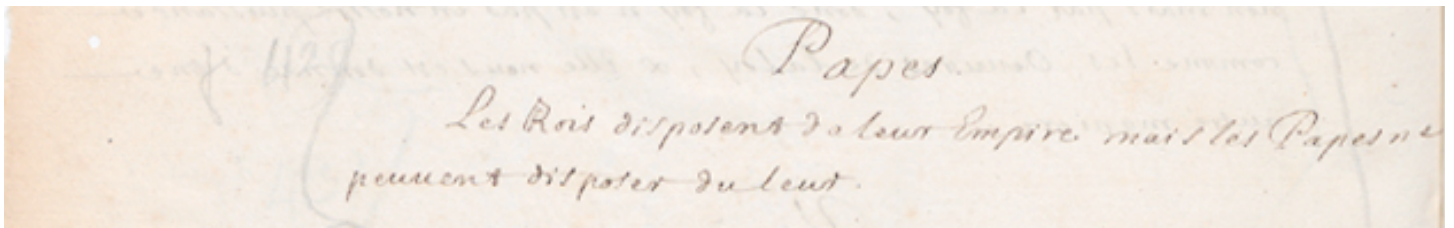 Papes.
Les Rois disposent de leur Empire mais les Papes ne
peuuent disposer du leur.